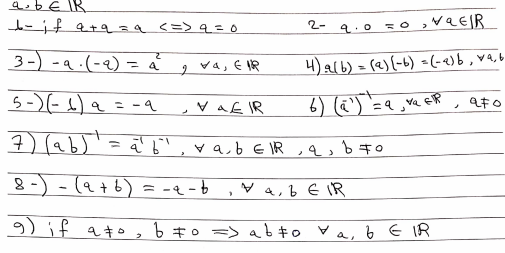 a, b ∈ ℝ
1- if a+a = a <=> a = 0    2- a.0 = 0, ∀a∈ℝ
3-) -a.(-a) = a², ∀a, ∈ ℝ    4) a(b) = (a)(-b) = (-a)b, ∀a,b
5-) (-1) a = -a, ∀ a ∈ ℝ    6) (a⁻¹)⁻¹ = a, ∀a∈ℝ, a≠0
7) (ab)⁻¹ = a⁻¹ b⁻¹, ∀ a,b ∈ ℝ, a, b ≠0
8-) -(a+b) = -a-b, ∀ a, b ∈ ℝ
9) if a≠0, b ≠0 => ab≠0 ∀ a, b ∈ ℝ